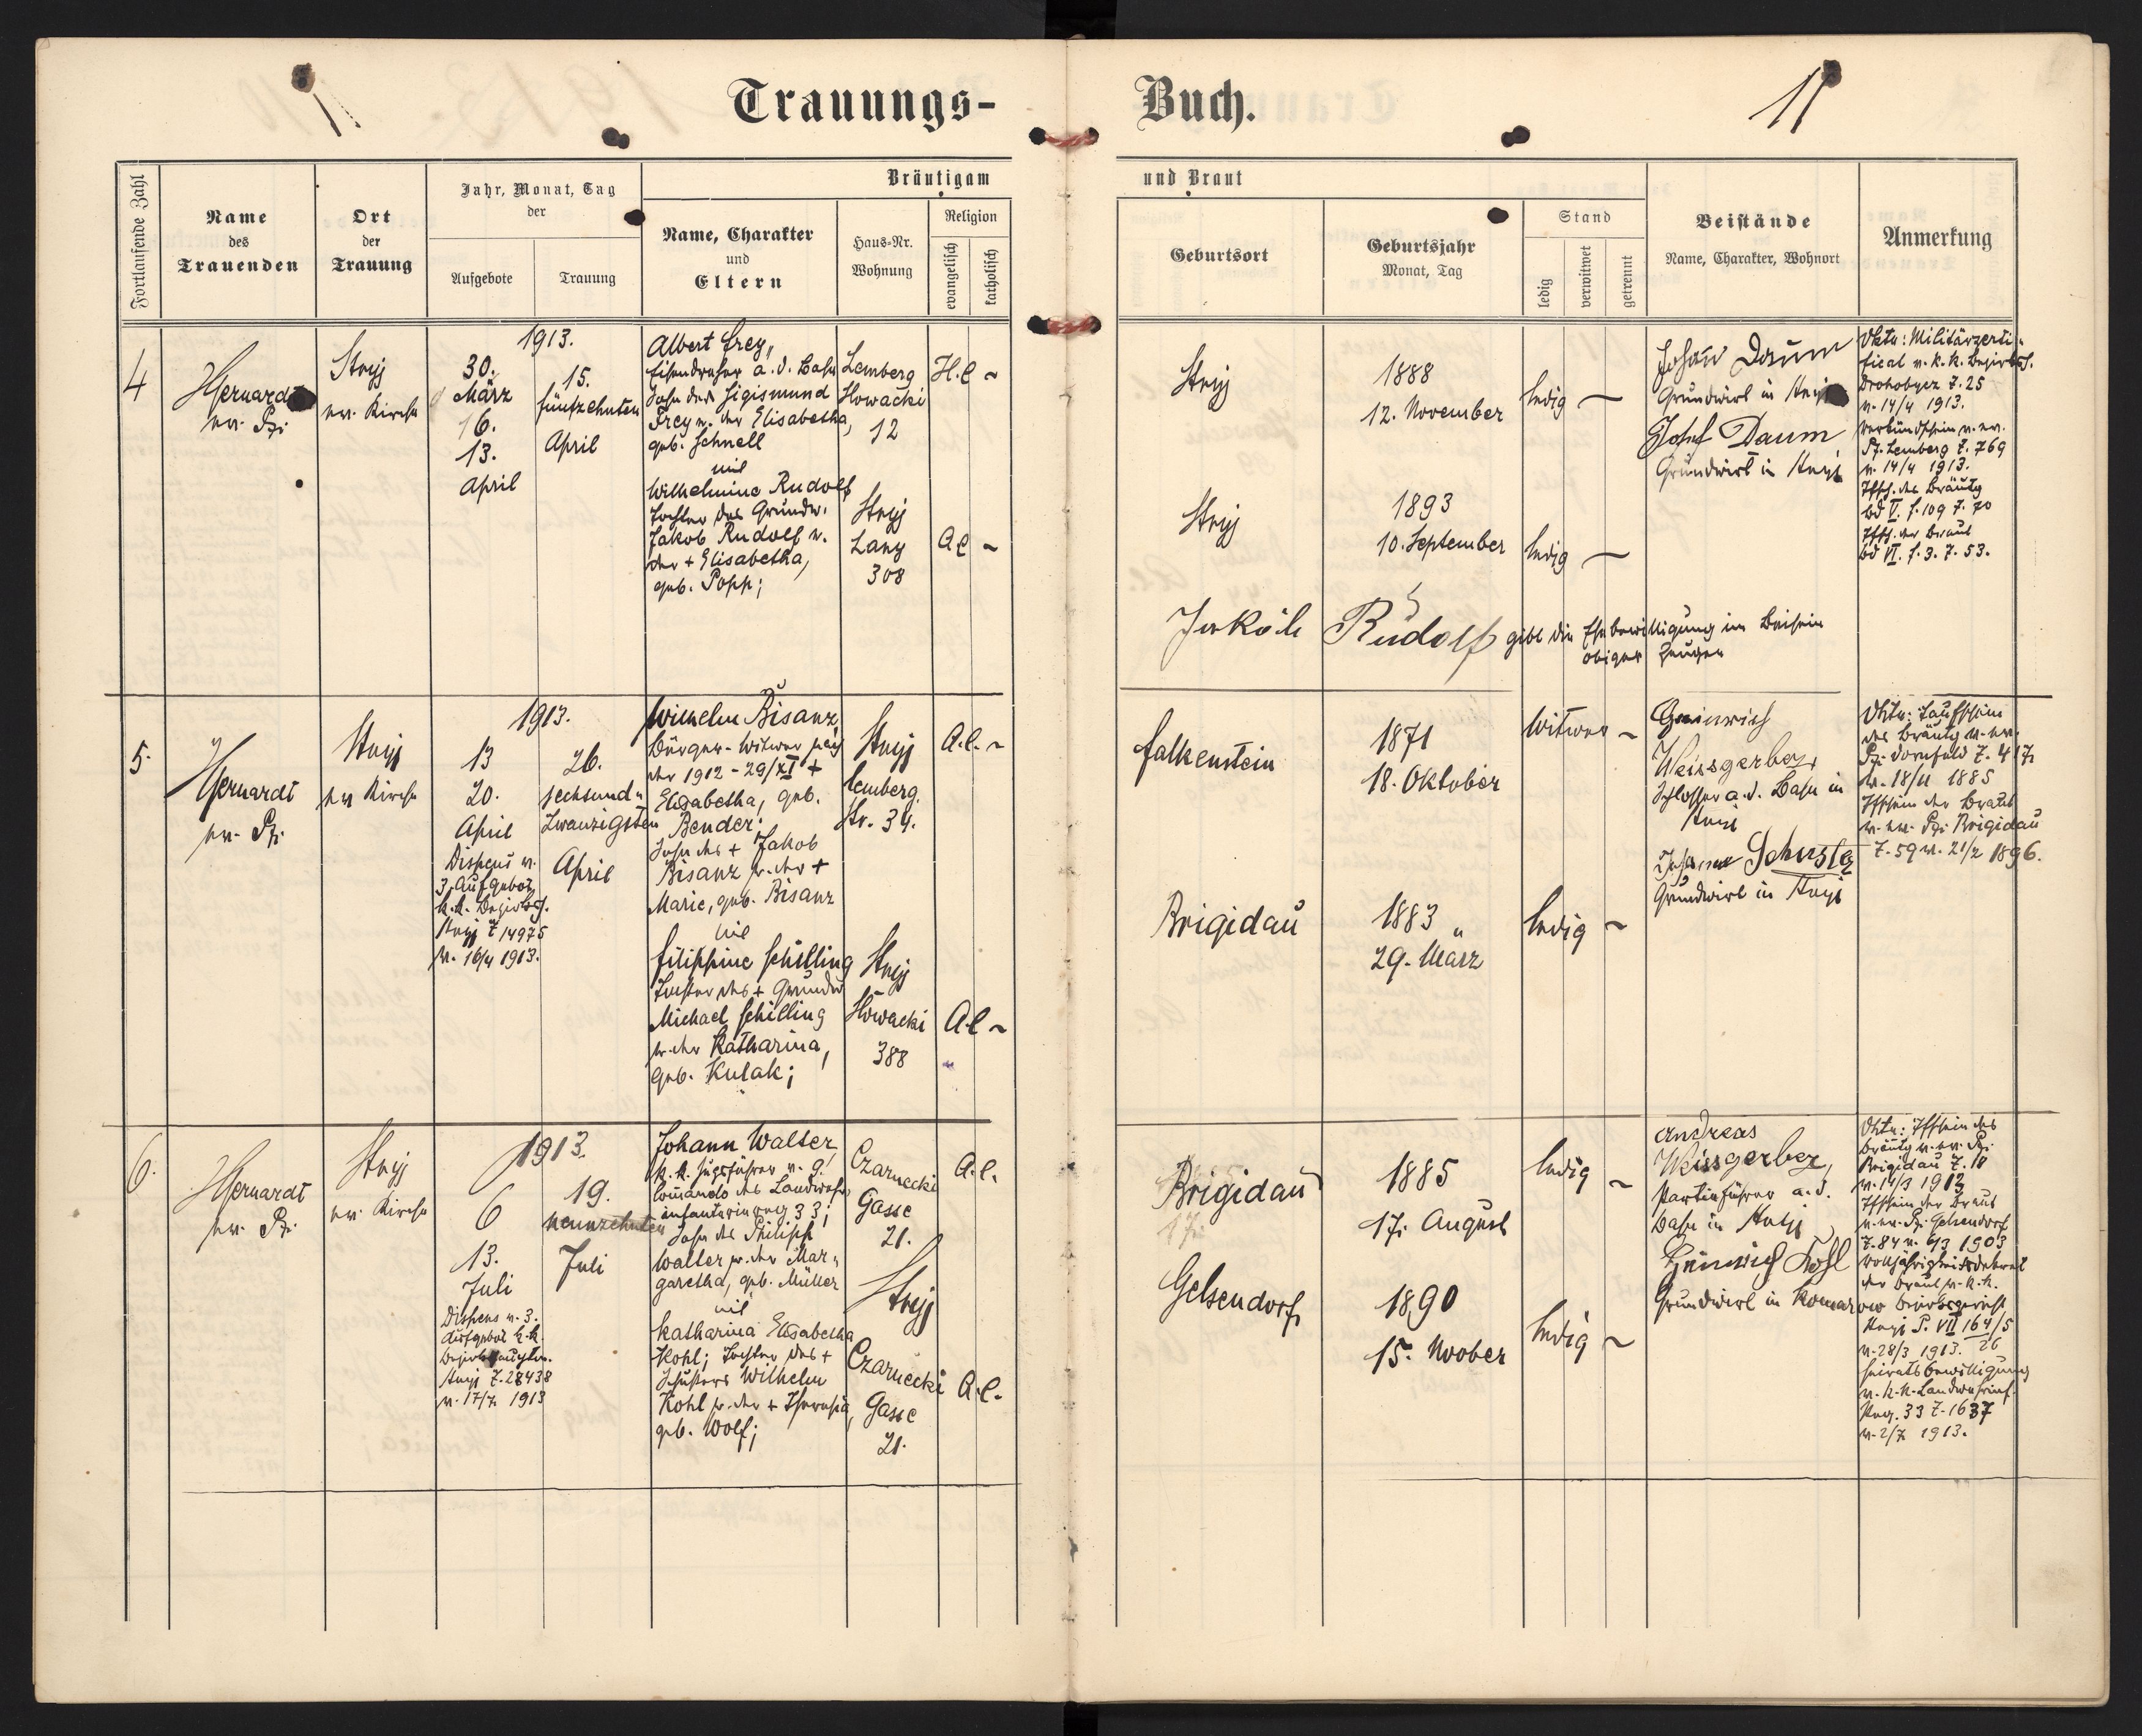 Trauungs-
Buch.
11
Fortlaufende Zahl
Name
des
Trauenden
Ort
der
Trauung
Jahr, Monat, Tag
der
Aufgebote
Trauung
Bräutigam
Name, Charakter
und
Eltern
Haus-Nr.
Wohnung
Religion
evangelisch
katholisch
und Braut
Geburtsort
Geburtsjahr
Monat, Tag
Stand
ledig
verwitwet
getrennt
Beistände
Name, Charakter, Wohnort
Anmerkung
4
ev. Pfr.
Stryj
ev. Kirche
1913.
30.
März
6.
13.
April
15.
fünfzehnten
April
Albert Frey,
Eisendreher a. d. Bahn
Sohn des Sigismund
Frey u. der Elisabetha,
geb. Schnell
mit
Wilhelmine Rudolf
Tochter des Grundw.
Jakob Rudolf u.
der + Elisabetha,
geb. Popp;
Lemberg
Slowacki
12
Stryj
Lany
308
H.C ~
A.C ~
Stryj
1888
12. November
ledig —
Stryj
1893
10. September
ledig —
Johann Daum
Grundwirt in Stryj
Josef Daum
Grundwirt in Stryj
Aktu: Militärzerti-
fikat v. k. k. Bezirksh.
Drohobycz Z. 25
v. 14/4 1913.
Verkündschein v. ev.
Pf. Lemberg Z. 769
v. 14/4 1913.
Tfsch. des Bräutg
Bd V. S. 109 Z. 70
Tfsch. der Braut
Bd VI. S. 3. Z. 53.
Jakob Rudolf gibt die Ehebewilligung im Beisein
obiger Zeugen
5.
ev. Pfr.
Stryj
ev Kirche
1913.
13
20.
April
Dispens v.
3. Aufgebot
k. k. Bezirksh.
Stryj Z 14975
v. 16/4 1913.
26.
sechsund-
zwanzigsten
April
Wilhelm Bisanz
Bürger-Witwer nach
der 1912 - 29/XI +
Elisabetha, geb.
Bender.
Sohn des + Jakob
Bisanz u. der +
Marie, geb. Bisanz
mit
Filippine Schilling
Tochter des + Grundw
Michael Schilling
u. der Katharina,
geb. Kulak;
Stryj
Lemberg.
Str. 34.
Stryj
Slowacki
388
A.C. ~
A.C ~
Falkenstein
1871
18. Oktober
Witwer ~
Brigidau
1883
29. März
ledig ~
Heinrich
Weissgerber,
Schlosser a. d. Bahn in
Stryj
Schuster
Grundwirt in Stryj
Aktu: Taufschein
des Bräutg v. ev.
Pfr. Dornfeld Z. 417.
v. 18/11 1885
Tfschein der Braut
v. ev. Pfr. Brigidau
Z. 59 v. 21/2 1896.
6.
ev. Pfr.
Stryj
ev. Kirche
1913.
6
13.
Juli
Dispens v. 3.
Aufgebot k. k.
Stryj Z. 28438
v. 17/7 1913
19.
neunzehnten
Juli
Johann Walter,
k. k. Zugsführer v. 9.
Comando des Landwehr-
infanterie reg 33;
Sohn des Philipp
Walter u. der Mar-
garetha, geb. Müller
mit
Katharina Elisabetha
Kohl; Tochter des +
Schusters Wilhelm
Kohl u. der + Theresia,
geb. Wolf;
Czarnecki
Gasse
21.
Stryj
Czarnecki
Gasse
21.
A.C.
A.C.
Brigidau
1885
17. August
ledig ~
Gelsendorf
1890
15. Novber
ledig ~
Andreas
Weissgerber,
Partieführer a. d.
Bahn in Stryj
Heinrich Kohl
Grundwirt in Komarow
Aktu: Tfschein des
Bräutg v. ev. Pfr.
Brigidau Z. 18
v. 14/3 1913
Tfschein der Braut
v. ev. Pfr. Gelsendorf
Z. 84 v. 6/3 1903
Volljährigkeitsdekret
der Braut v. k. k.
Bezirksgericht
Stryj P. VII 164/5
26
v. 28/3 1913.
Heiratsbewilligung
v. k. k. Landwehrinf.
Reg. 33 Z. 1637
v. 2/7 1913.